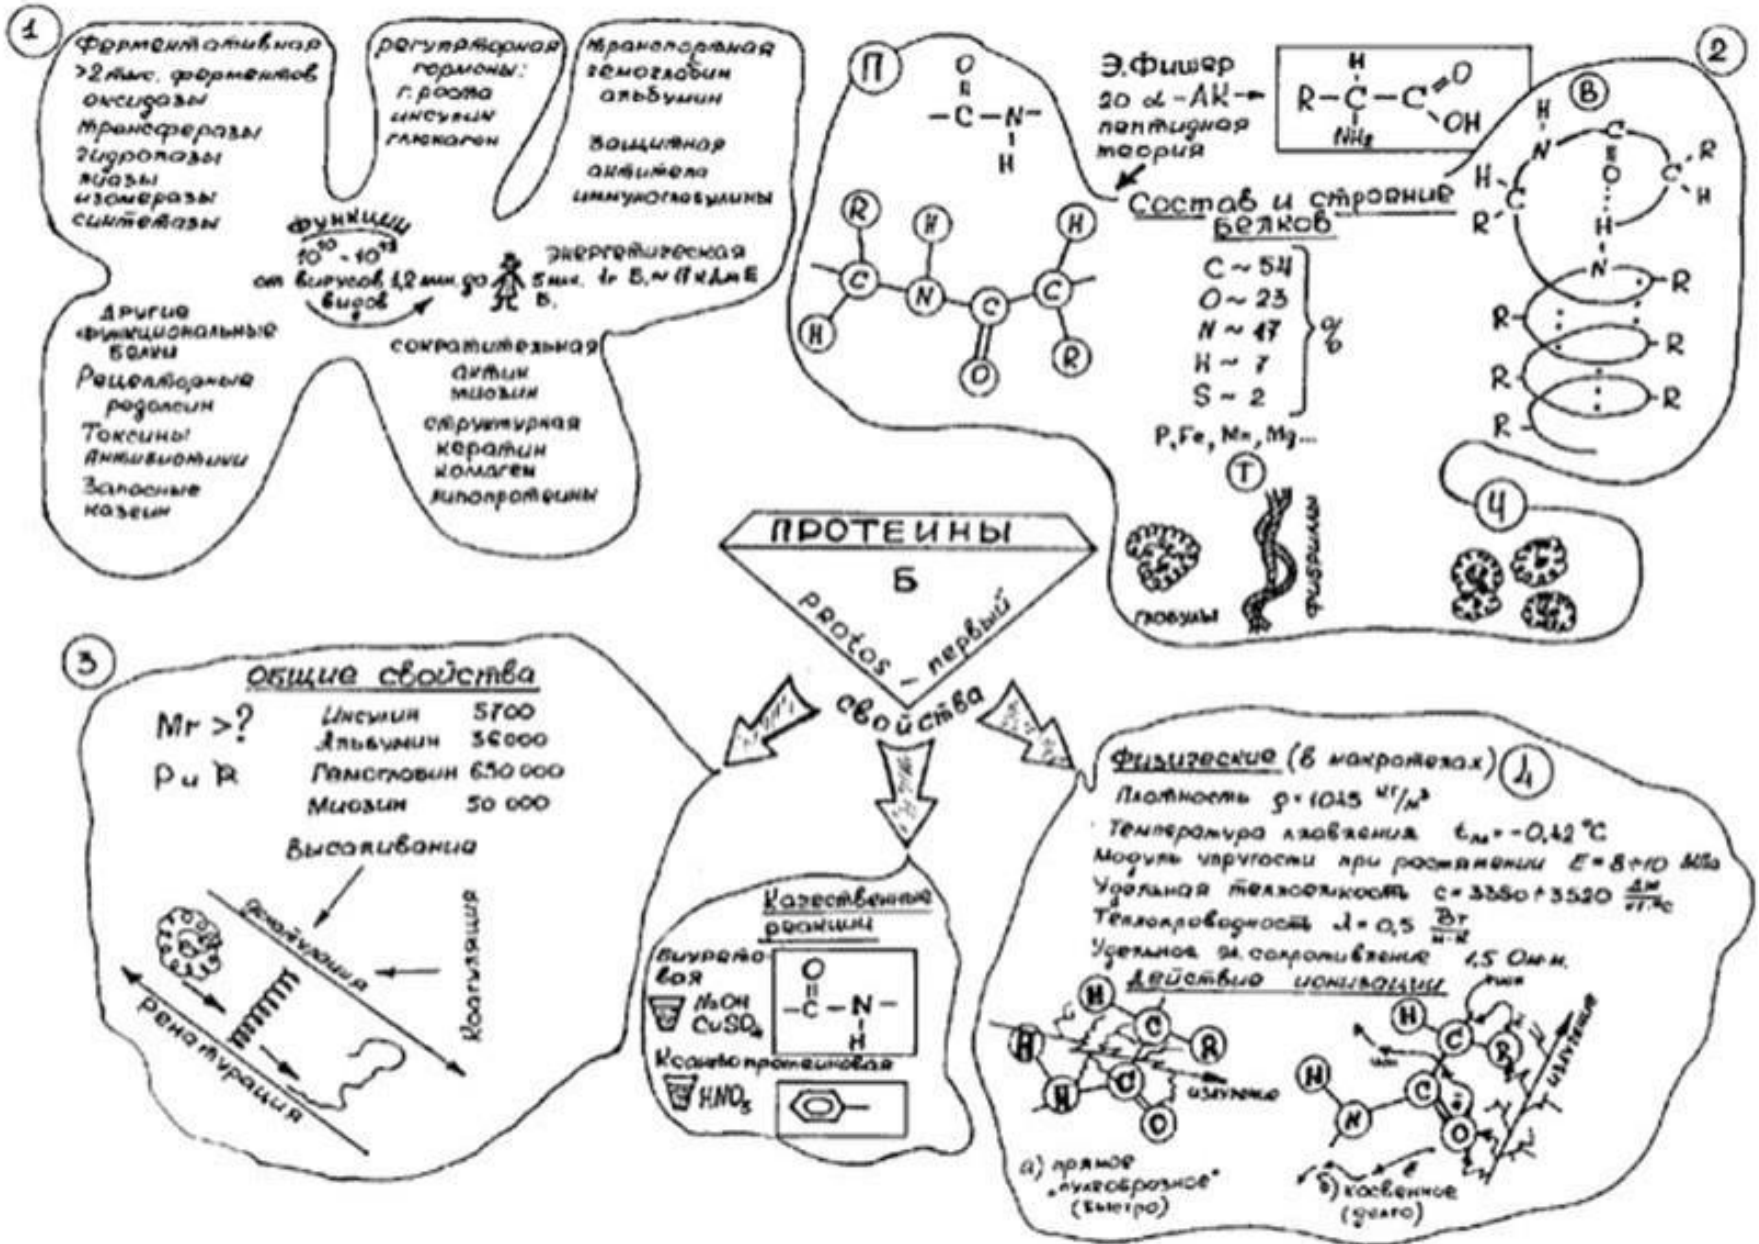 1
ферментативная
>2 тыс. ферментов
оксидазы
трансферазы
гидролазы
лиазы
изомеразы
синтетазы
регуляторная
гормоны:
г. роста
инсулин
глюкагон
транспортная
гемоглобин
альбумин
защитная
антитела
иммуноглобулины
Функции
от вирусов 1,2 млн. до 5 млн.
видов
Б.
энергетическая
1г Б.
другие
функциональные
белки
Рецепторные
родопсин
Токсины
Антибиотики
Запасные
казеин
сократительная
актин
миозин
структурная
кератин
колаген
липопротеины
2
П
O
-C-N-
H
R H H
C N C C
H O R
Э. Фишер
20 α-АК→
пептидная
теория
H
R-C-C O
OH
NH₂
Состав и строение
Белков
C ~ 54
O ~ 23
N ~ 17
H ~ 7
S ~ 2
%
P, Fe, Mn, Mg...
В
H
N C R
O C
H C H
R H
N R
R
R
R
R
R
Т
глобулы
фибриллы
Ч
ПРОТЕИНЫ
Б
protos – первый
свойства
3
общие свойства
Mr >?
Р и Р
Инсулин 5700
Альбумин 36000
Гемоглобин 650 000
Миозин 50 000
Высаливание
денатурация
Коагуляция
Ренатурация
Качественные
реакции
Биурето-
вая
NaOH
CuSO₄
O
-C-N-
H
Ксантопротеиновая
HNO₃
4
Физические (в макротелах)
Плотность ρ=1025 кг/м³
Температура плавления
Модуль упругости при растяжении E=8÷10
Удельная теплоемкость c=3350÷3520
Теплопроводность λ=0,5 Вт
Удельное эл. сопротивление 1,5 Ом·м.
Действие ионизации
H C R
H
N C
O
излучение
а) прямое
„пулеобразное"
(быстро)
H C R
H C
N O
излучение
б) косвенное
(долго)